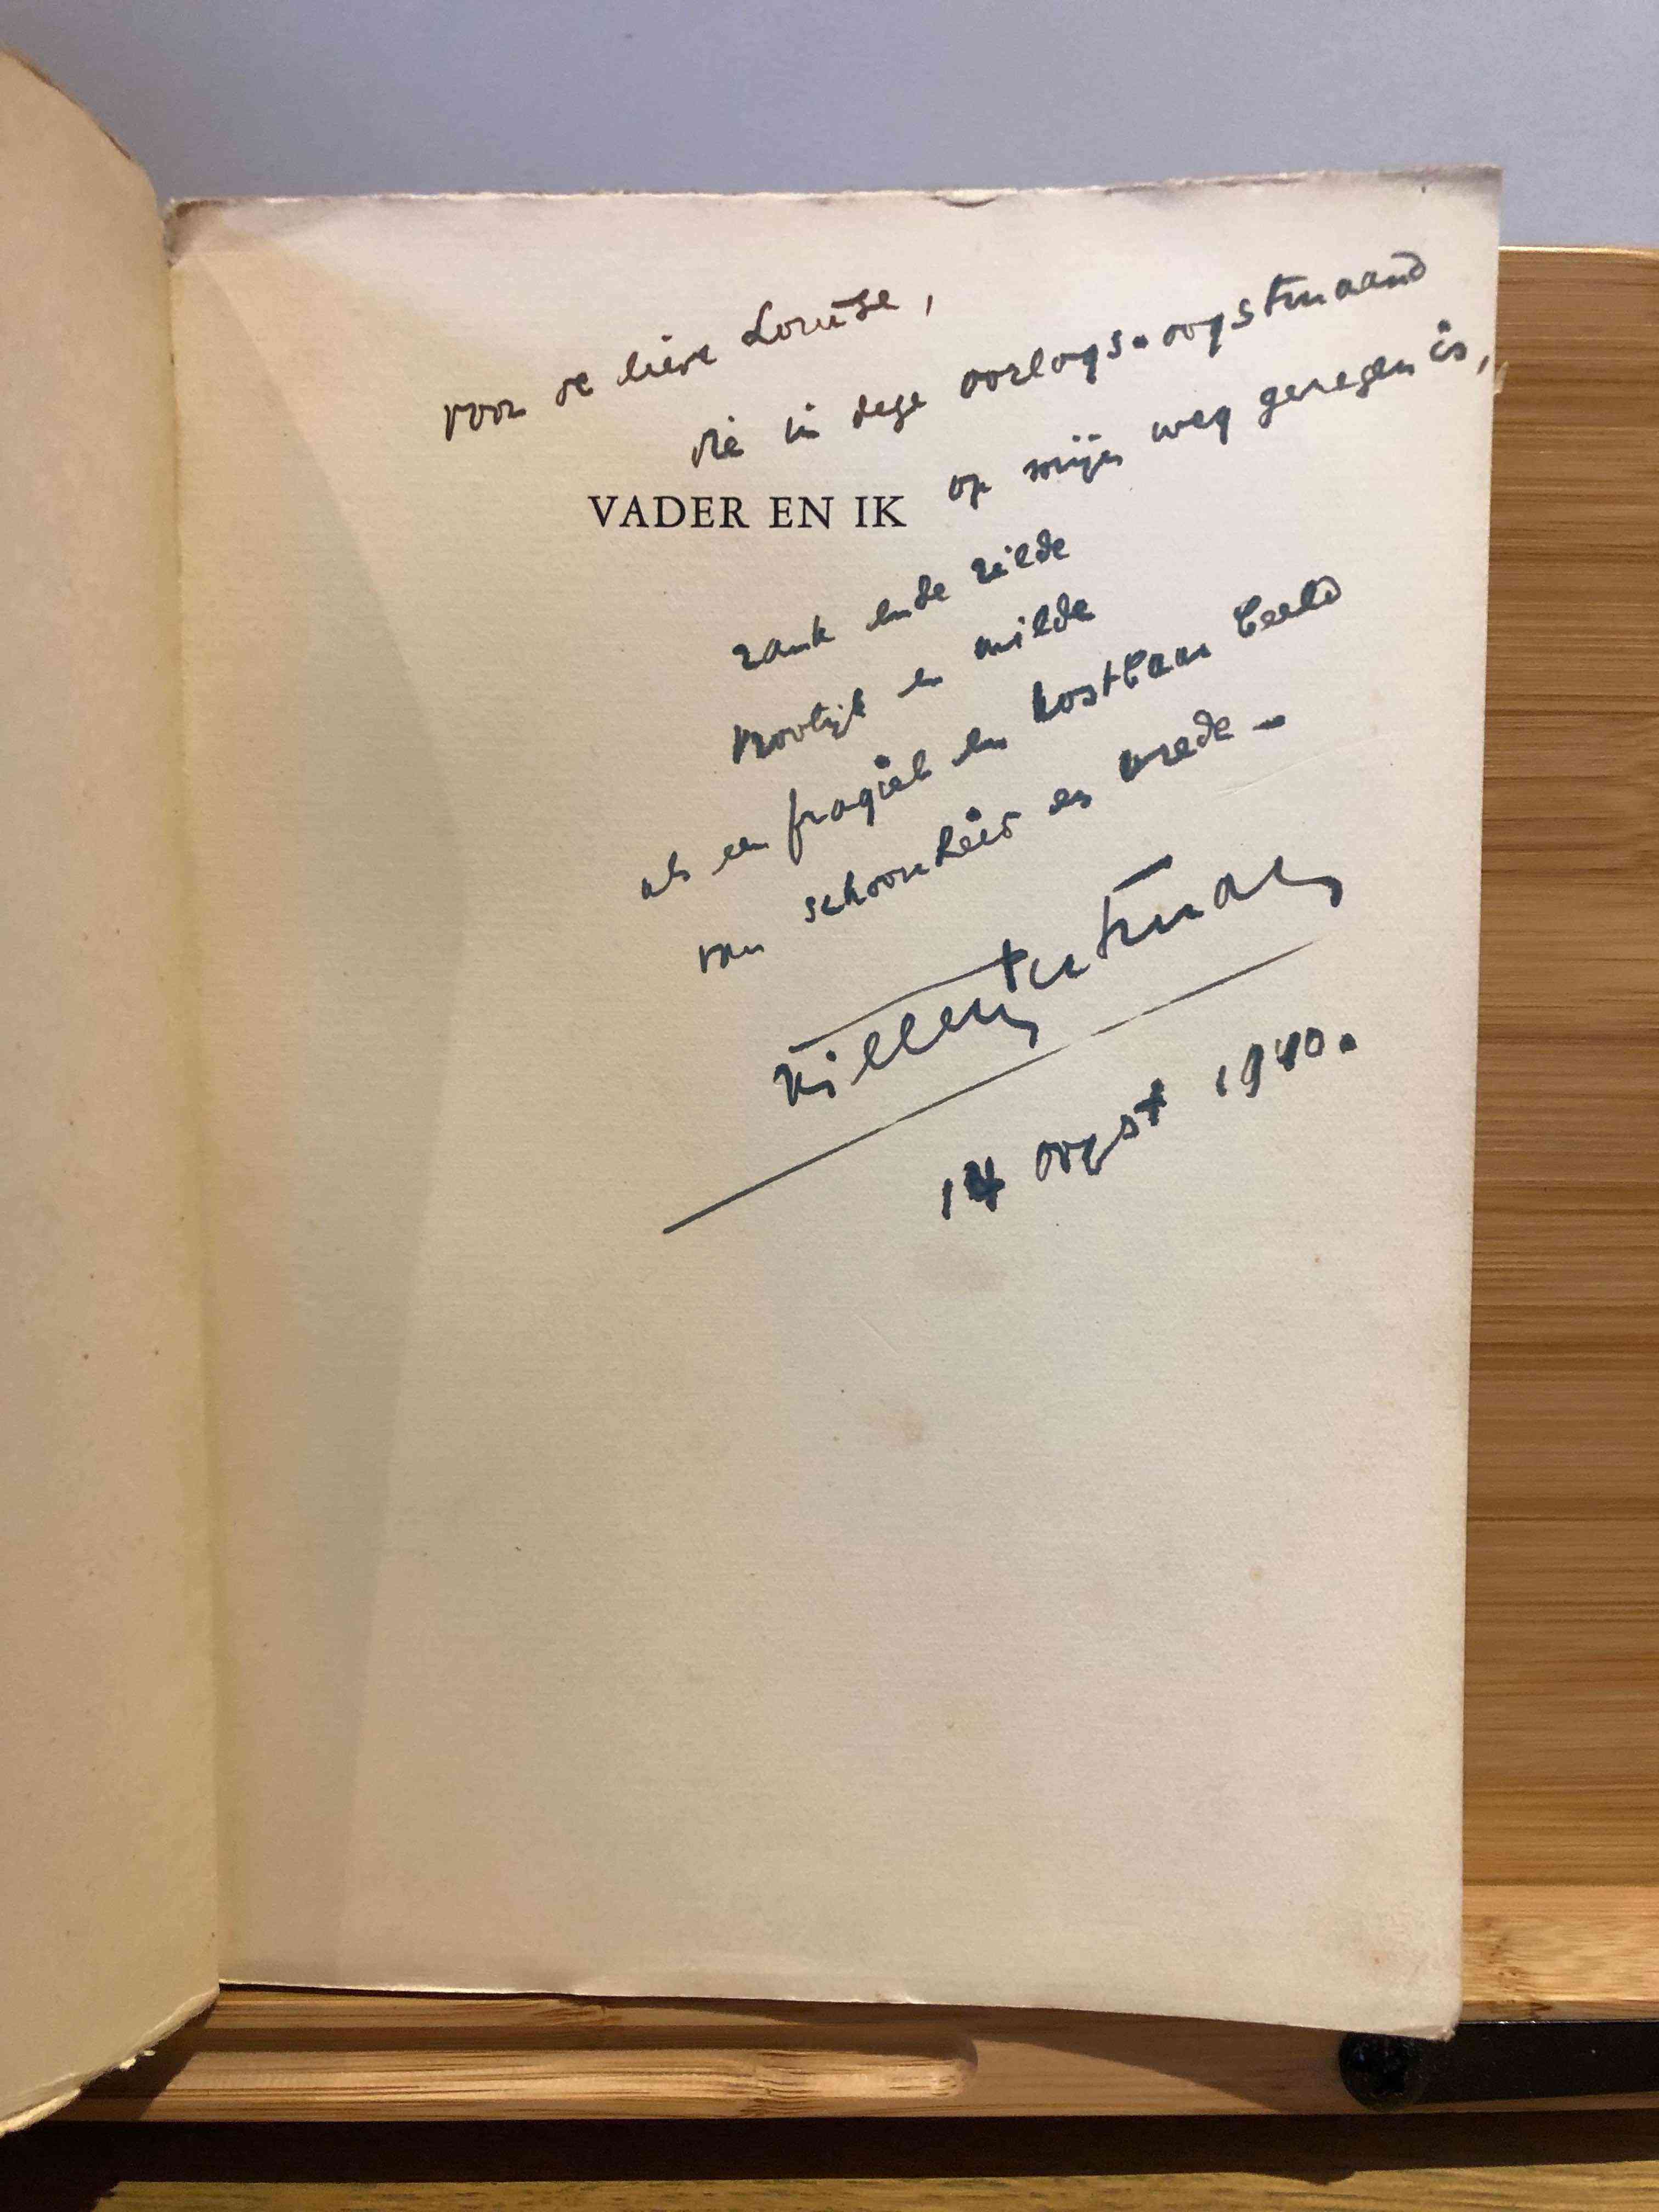 voor de lieve Louise,
die in deze oorlogs-oogstmaand
op mijn weg gerezen is,
VADER EN IK
rank ende rilde
vroolijk en milde
als een fragiel en kostbaar beeld
van schoonheid en vrede –
Willem Putman
14 oogst 1940.